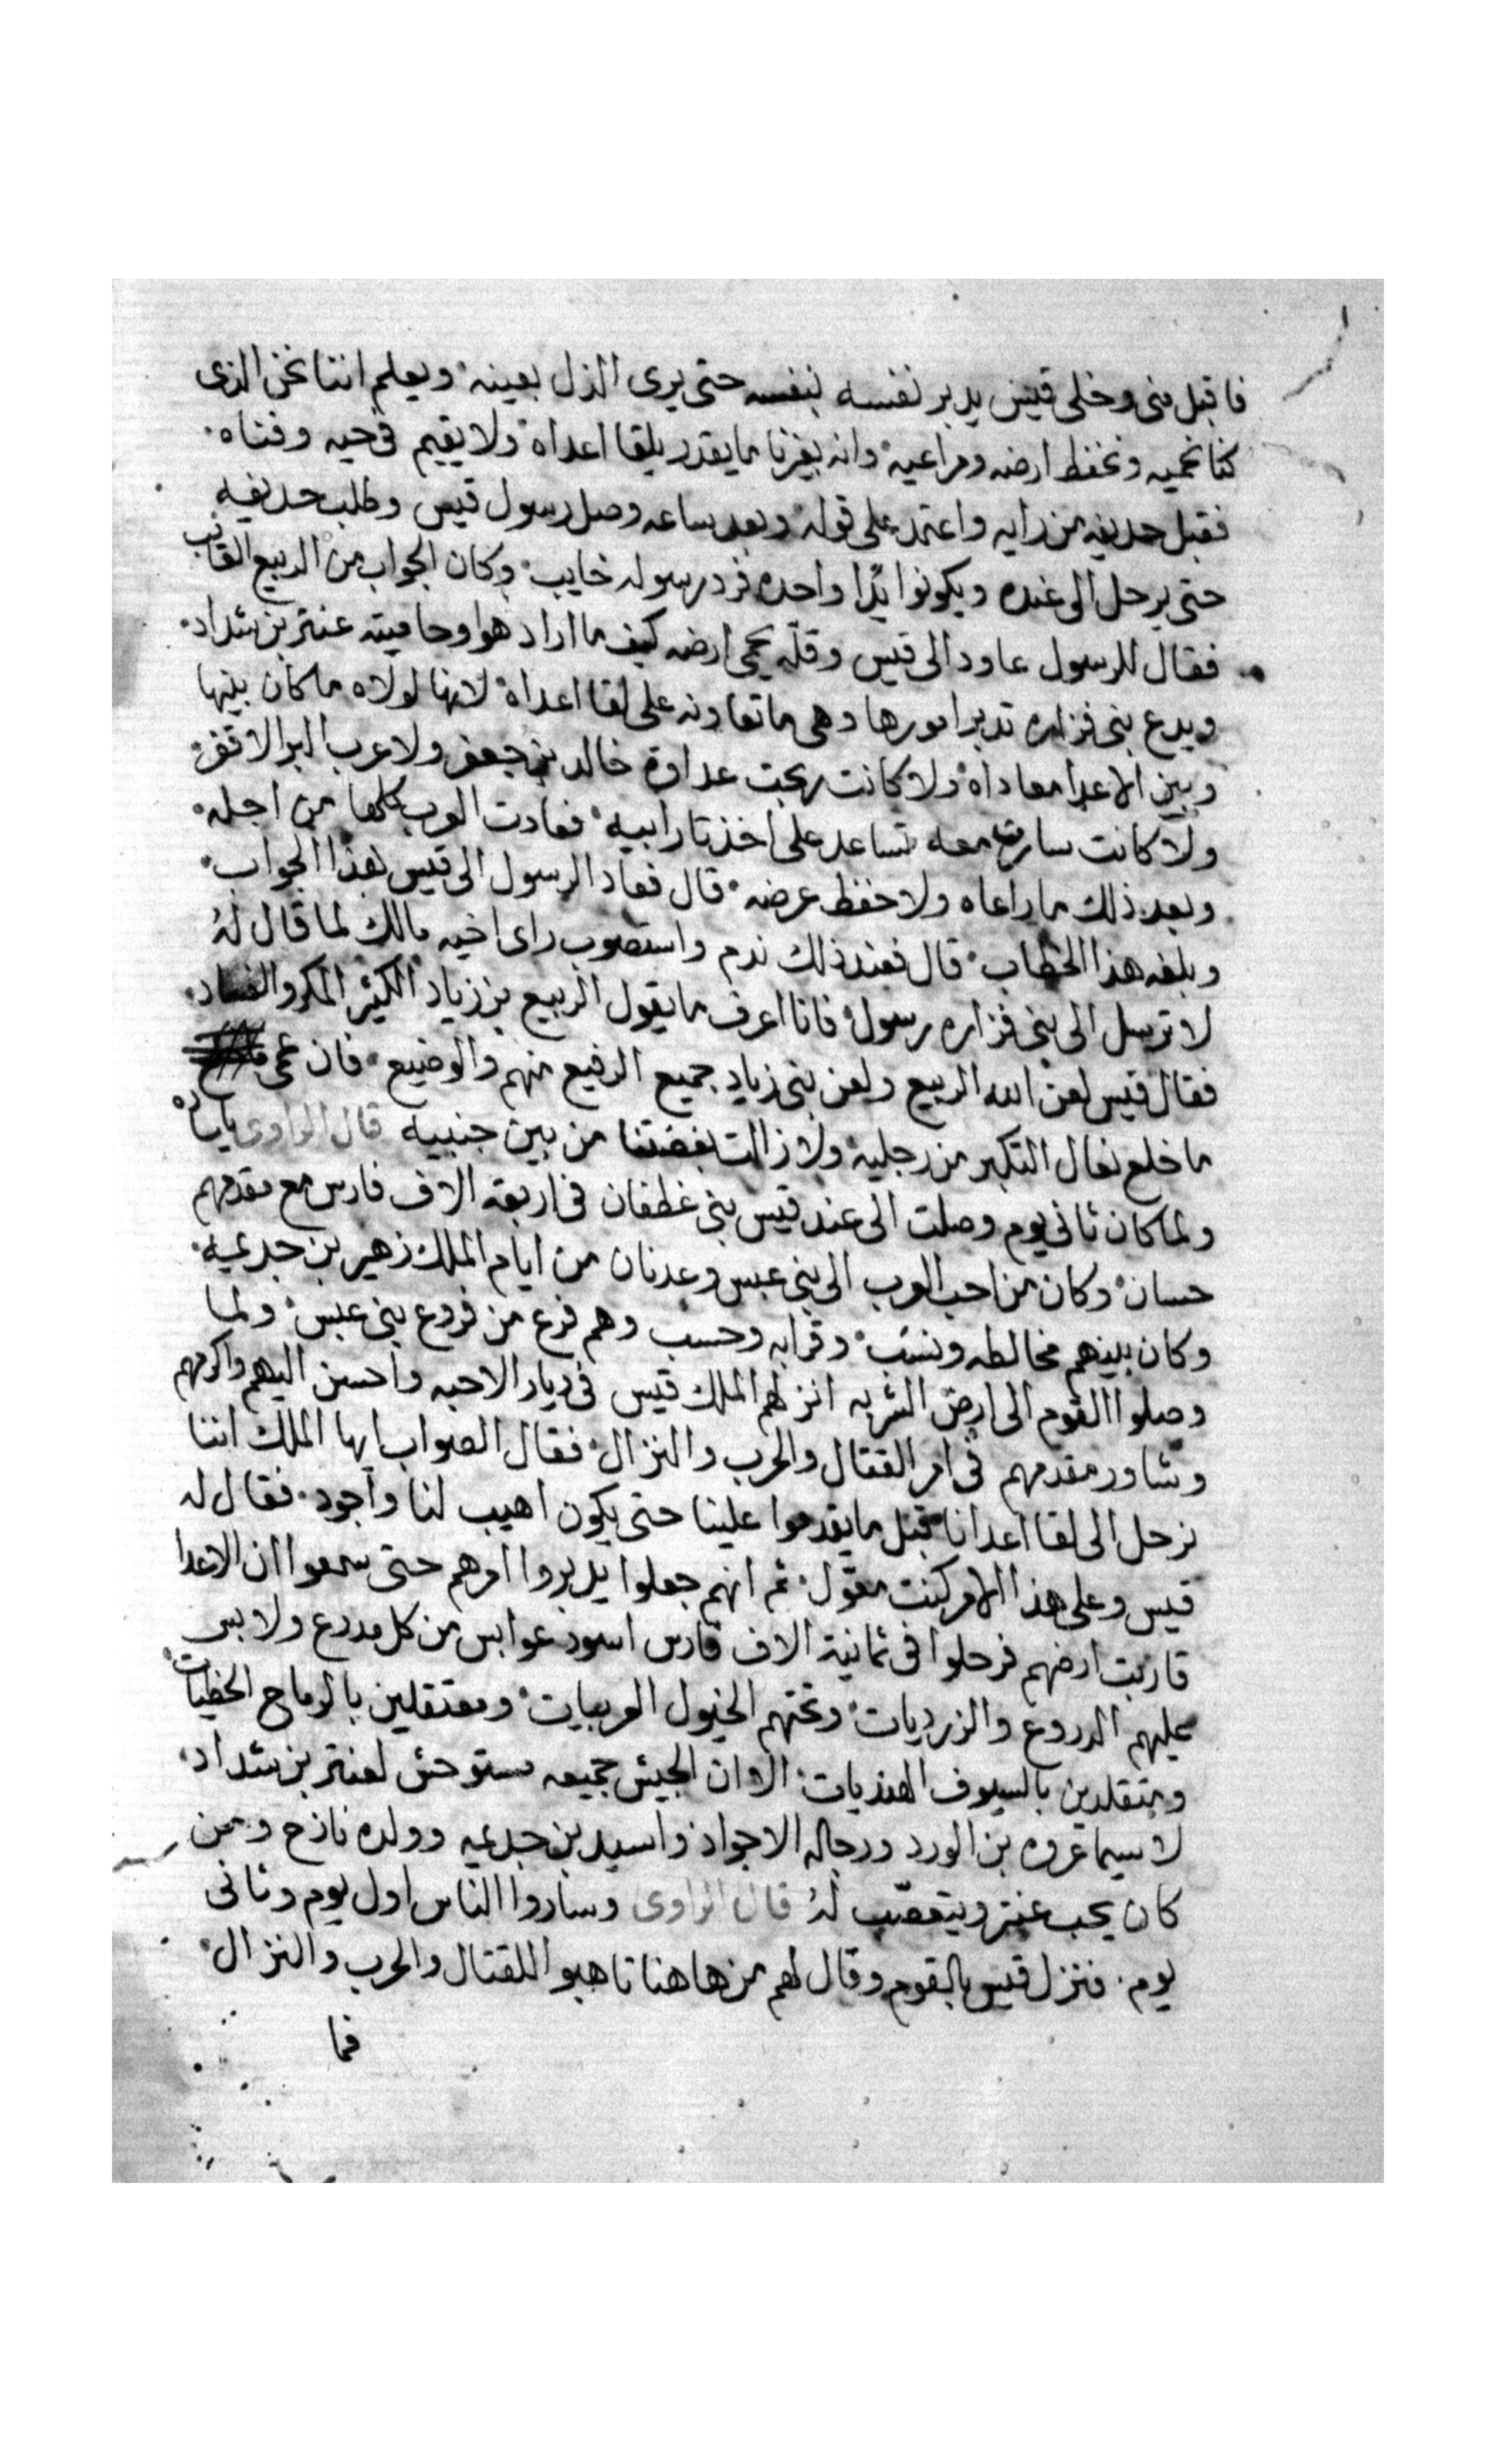 فاقبل منى وخلى قيس يدبر نفسه بنفسه حتى يرى الذل بعينه ويعلم اننا نحن الذى
كنا نحميه ونحفظ ارضه ومراعيه وانه بغيرنا ما يقدر يلقا اعداه ولا يقيم فى حيه وفناه
فقبل حديفه من رايه واعتمد على قوله وبعد ساعه وصل رسول قيس وطلب حديفه
حتى يرحل الى عنده ويكونوا يدا واحده فرد رسوله خايب وكان الجواب من الربيع
فقال للرسول عاود الى قيس وقله يحمى ارضه كيف ما اراد هوا وحاميته عنتر بن شداد
ويدع بنى فزاره تدبر امورها وهى ما تعاونه على لقا اعداه لانها لولاه ما كان بينها
وبين الاعدا معاداه ولا كانت عداوة خالد بن جعفر ولا عرب البر الاقفر
ولا كانت سارت معه تساعد على اخذ تار ابيه فعادت العرب كلها من اجله
وبعد ذلك ما راعاه ولا حفظ عرضه قال فعاد الرسول الى قيس بهذا الجواب
وبلغه هذا الخطاب قال فعند ذلك ندم واستصوب راى اخيه مالك لما قال له
لا ترسل الى بنى فزاره رسول فانا اعرف ما يقول الربيع بن زياد الكثير المكر والفساد
فقال قيس لعن الله الربيع ولعن بنى زياد جميع الرفيع منهم والوضيع فان عمى
ما خلع نعال التكبر من رجليه ولا زالت بغضتنا من بين جنبيه قال الراوى يا ساده
ولما كان ثانى يوم وصلت الى عند قيس بنى غطفان فى اربعة الاف فارس مع مقدمهم
حسان وكان من احب العرب الى بنى عبس وعدنان من ايام الملك زهير بن جديمه
وكان بينهم مخالطه ونسب وقرابه وحسب وهم فرع من فروع بنى عبس ولما
وصلوا القوم الى ارض الشربه انزلهم الملك قيس فى ديار الاحبه واحسن اليهم واكرمهم
وشاور مقدمهم فى امر القتال والحرب والنزال فقال الصواب ايها الملك اننا
نرحل الى لقا اعدانا قبل ما يقدموا علينا حتى يكون اهيب لنا واجود فقال له
قيس وعلى هذا الامر كنت معول ثم انهم جعلوا يدبروا امرهم حتى سمعوا ان الاعدا
قاربت ارضهم فرحلوا فى ثمانية الاف فارس اسود عوابس من كل مدرع ولابس
عليهم الدروع والزرديات وتحتهم الخيول العربيات ومعتقلين بالرماح الخطيات
ومتقلدين بالسيوف الهنديات الا ان الجيش جميعه مستوحش لعنتر بن شداد
لا سيما عروه بن الورد ورجاله الاجواد واسيد بن جديمه وولده نازح ومن
كان يحب عنتر ويتعصب له قال الراوى وساروا الناس اول يوم وثانى
يوم فنزل قيس بالقوم وقال لهم من هاهنا تاهبوا للقتال والحرب والنزال
فما